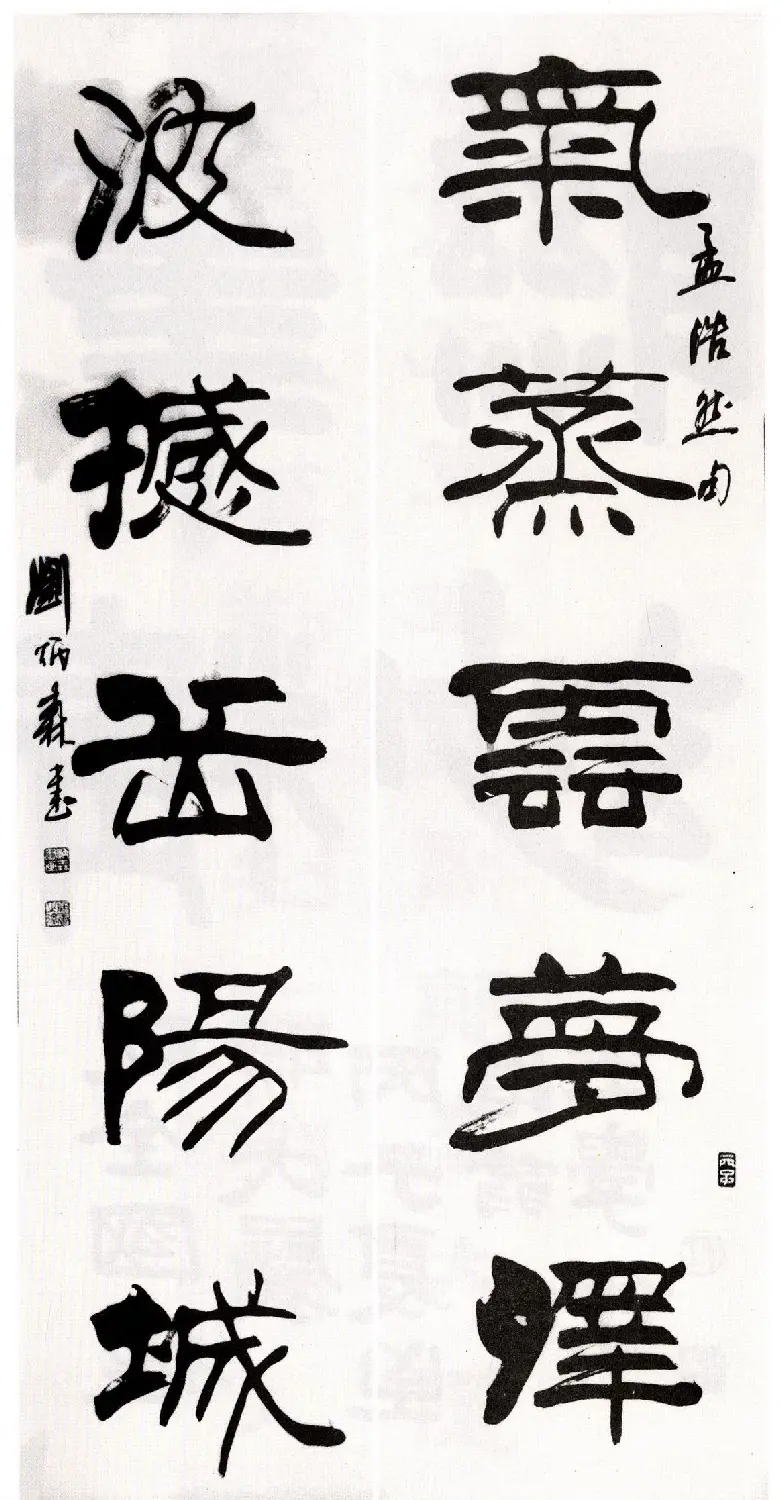 氣蒸雲夢澤
孟浩然句
波撼岳陽城
劉炳森書